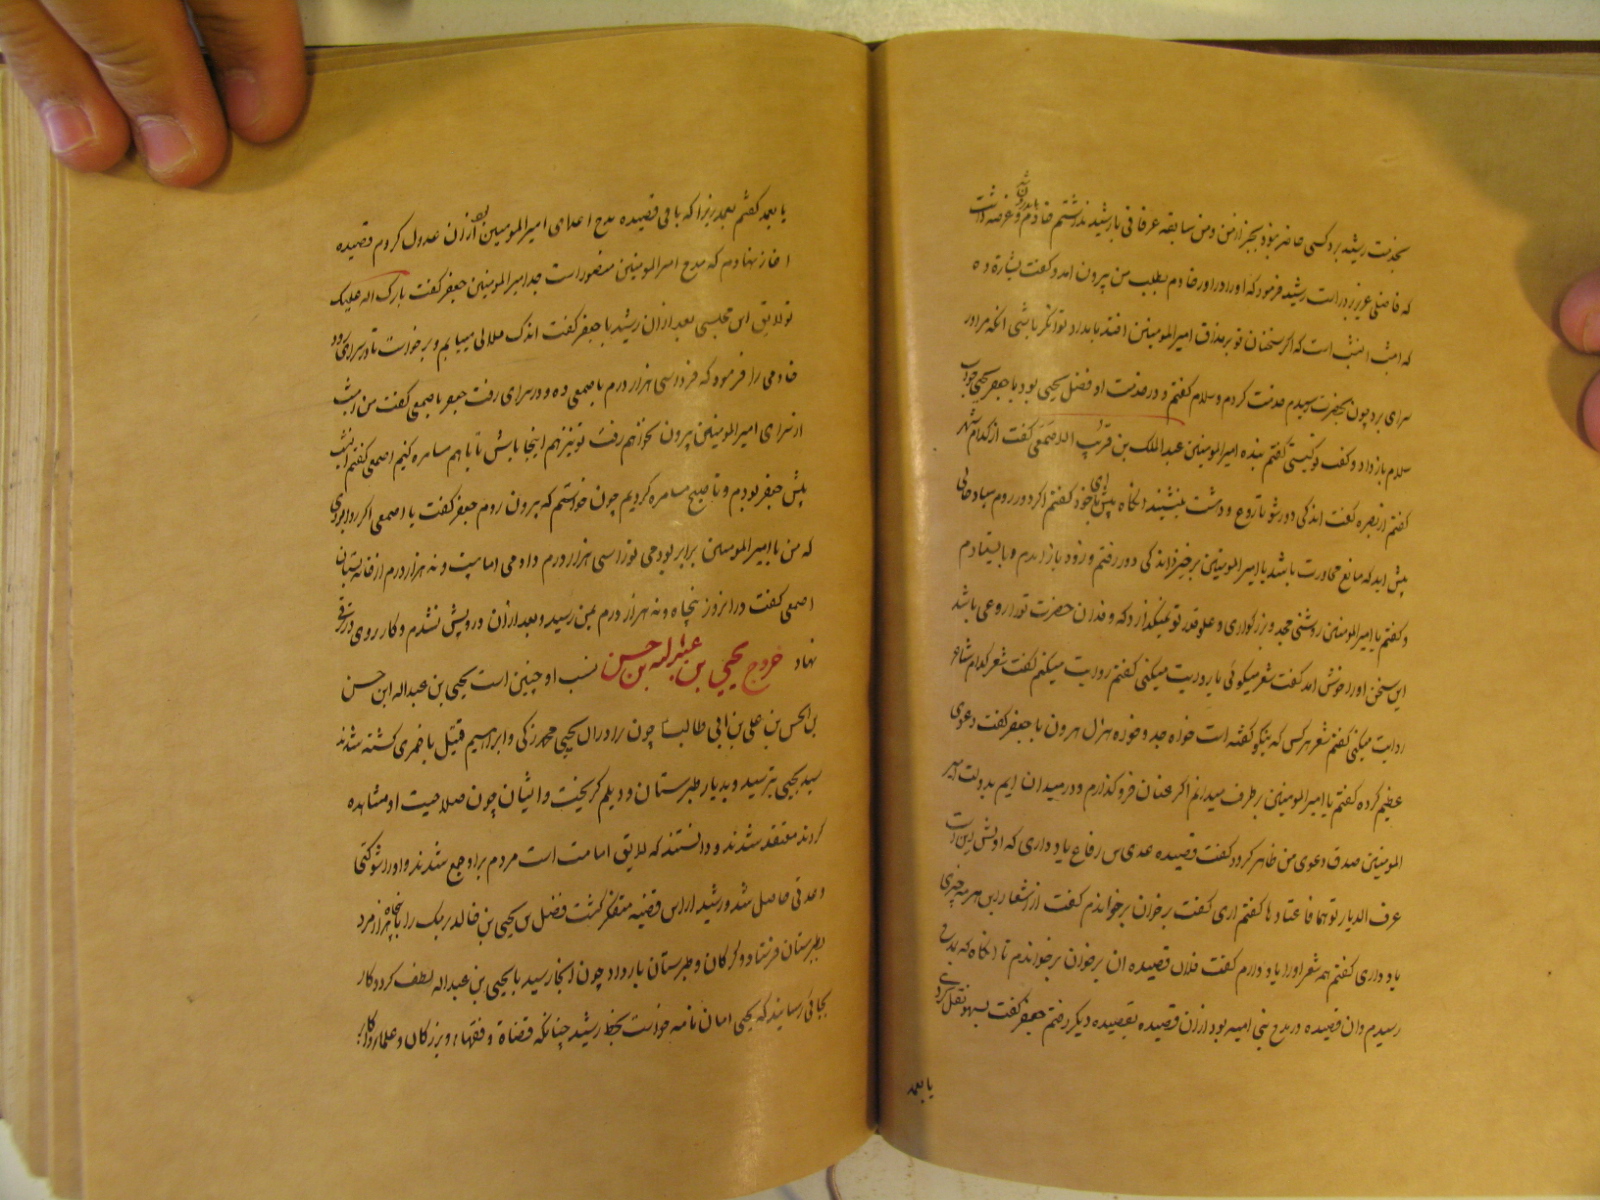 بخدمت رشید برد کسی حاضر نبود بجز از من و من سابقه عرفانی با رشید نداشتم خادم و عرضه داشت
که فاضلی عزیز بر در است رشید فرمود که او را در اور خادم بطلب من بیرون امد و کفت بشارة ده
که امشب انشب است که اکر سخنان تو بر مذاق امیر المومنین افتد بامداد توانکر باشی انکه مرا در
سرای برد چون بحضرت رسیدم خدمت کردم و سلام کفتم و در خدمت او فضل یحیی بود یا جعفر یحیی جواب
سلام باز داد و کفت تو کیستی کفتم بنده امیر المومنین عبد الملک بن قریب الاصمعی کفت از کدام شهر
کفتم از بصره کفت اندکی دور شو تا روع و دشت بنشیند انکاه پیش ای با خود کفتم اکر دور روم مبادا حالی
پیش اید که مانع مجاورت باشد یا امیر المومنین برخیزد اندکی دور رفتم و زود باز امدم و بایستادم
و کفتم یا امیر المومنین روشنی مجد و بزرکواری و علو قدر تو نمیکذارد که وفدان حضرت تو را روعی باشد
این سخن او را خوش امد کفت شعر میکوئی یا روایت میکنی کفتم روایت میکنم کفت شعر کدام شاعر
روایت میکنی کفتم شعر هر کس که نیکو کفته است خواه جد و خواه هزل هرون با جعفر کفت دعوی
عظیم کرده کفتم یا امیر المومنین بر طرف میدانم اکر عنان فرو کذارم و در میدان ایم بدولت امیر
المومنین صدق دعوی من ظاهر کردد کفت قصیده عدی س رفاع یاد داری که اولش این است
عرف الدیار توهما فاعتادها کفتم اری کفت بر خوان بر خواندم کفت از اشعار ابن هرمه چیزی
یاد داری کفتم همه شعر او را یاد دارم کفت فلان قصیده ان بر خوان بر خواندم تا انکاه که بمدحی
رسیدم و ان قصیده در مدح بنی امیه بود از ان قصیده بقصیده دیکر رفتم جعفر کفت بسهو نقل کردی
یا بعمد
یا بعمد کفتم بعمد زیرا که باقی قصیده مدح اعدای امیر المومنین بود از ان عدول کردم قصیده
اغاز نهادم که مدح امیر المومنین منصور است جد امیر المومنین جعفر کفت بارک اله علیک
تو لایق این مجلسی بعد از ان رشید با جعفر کفت اندک ملالی مییابم و برخواست تا در سرای رود
خادمی را فرمود که فردا سی هزار درم باصمعی ده و در سرای رفت جعفر باصمعی کفت من امشب
از سرای امیر المومنین بیرون نخواهم رفت تو نیز هم اینجا باش تا با هم مسامره کنیم اصمعی کفتم انشب
پیش جعفر بودم و تا صبح مسامره کردیم چون خواستم که بیرون روم جعفر کفت یا اصمعی اکر روا بودی
که من با امیر المومنین برابر بودمی تو را سی هزار درم دادمی اما بیست و نه هزار درم از خانه بستان
اصمعی کفت در ان روز پنجاه و نه هزار درم بمن رسید و بعد از ان درویش نشدم و کار روی در ترقی
نهاد خروج یحیی بن عبد الله بن حسن نسب او چنین است یحیی بن عبد اله ابن حسن
بن الحسن بن علی بن ابی طالب چون برادران یحیی محمد زکی و ابراهیم قتیل باخمری کشته شدند
سید یحیی بترسید و بدیار طبرستان و دیلم کریخت و ایشان چون صلاحیت او مشاهده
کردند معتقد شدند و دانستند که لایق امامت است مردم بر او جمع شدند و او را شوکتی
و عدتی حاصل شد و رشید از این قضیه متفکر کشت فضل س یحیی بن خالد برمک را با پنجاه هزار مرد
بطبرستان فرستاد و کرکان و طبرستان باو داد چون انجا رسید با یحیی بن عبد اله لطف کرد و کار
بجائی رسانید که یحیی امان نامه خواست بخط رشید چنانکه قضاة و فقها و بزرکان و علماء